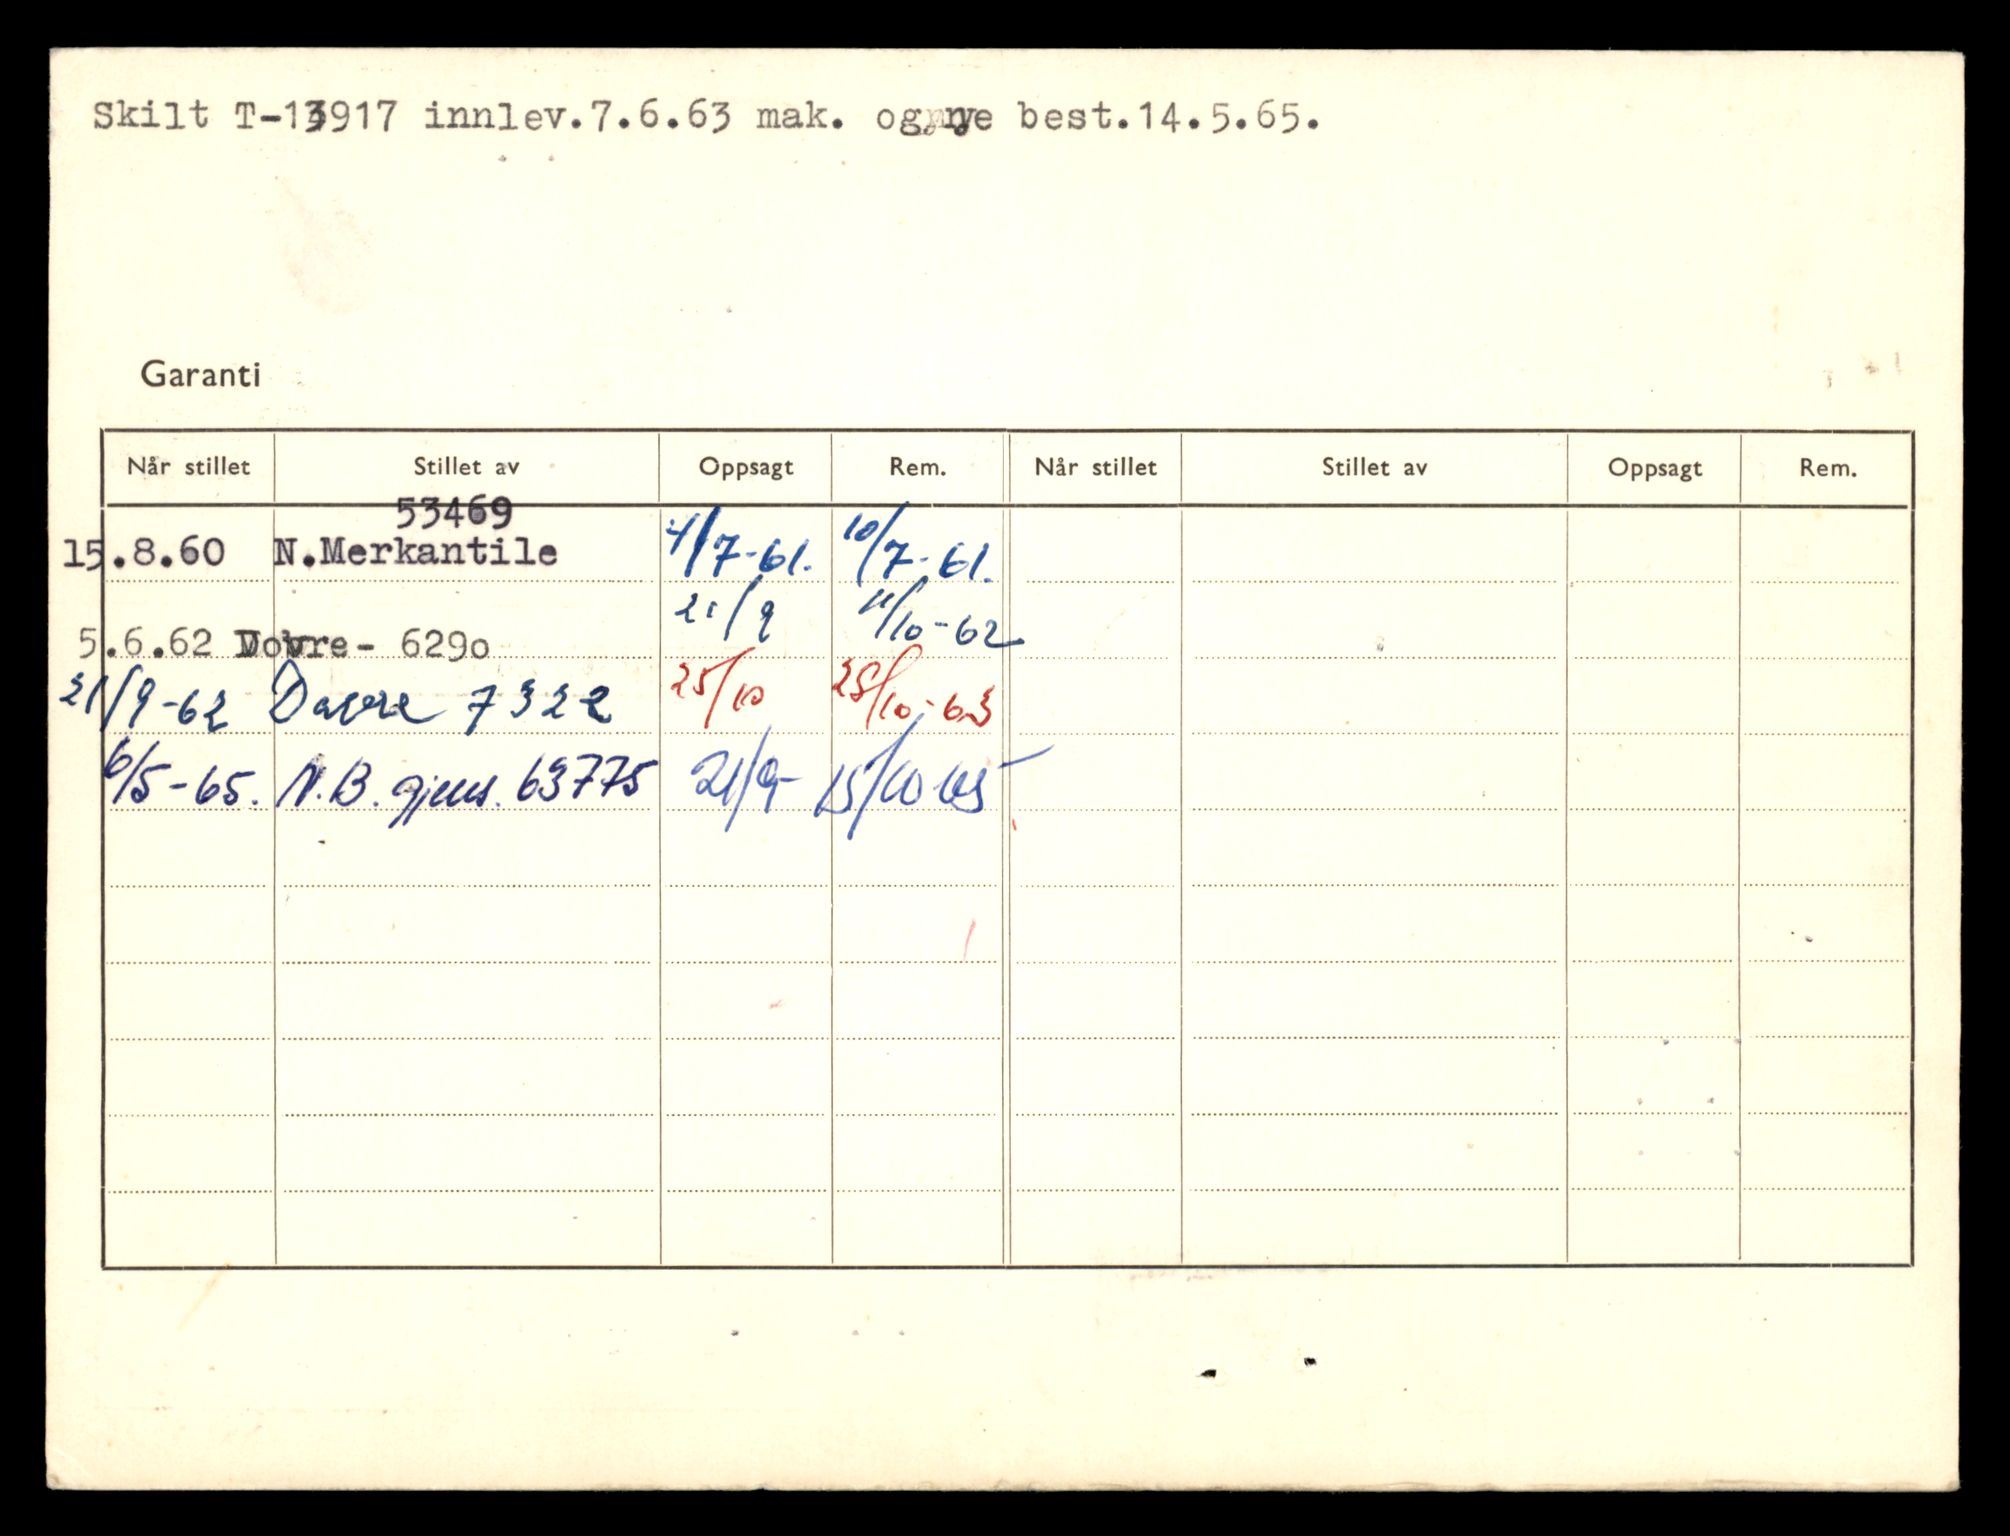 Skilt T-13917 innlev.7.6.63 mak. og nye best.14.5.65.
Garanti
Når stillet Stillet av Oppsagt Rem. Når stillet Stillet av Oppsagt Rem.
53469
15.8.60 N.Merkantile 4/7-61. 10/7-61.
5.6.62 Dovre- 6290 21/9 11/10-62
21/9-62 Dovre 7322 25/10 28/10-63
6/5-65. N.B. gjens. 63775 21/9- 15/10 65